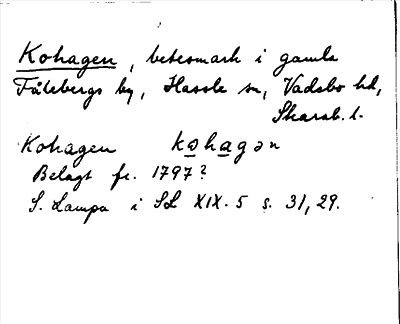 Kohagen, betesmark i gamla
Fåtebergs by, Hassle sn, Vadsbo hd,
Skarab. l.
Kohagen kohagən
Belagt fr. 1797?
S. Lampa i SL XIX. 5 s. 31, 29.